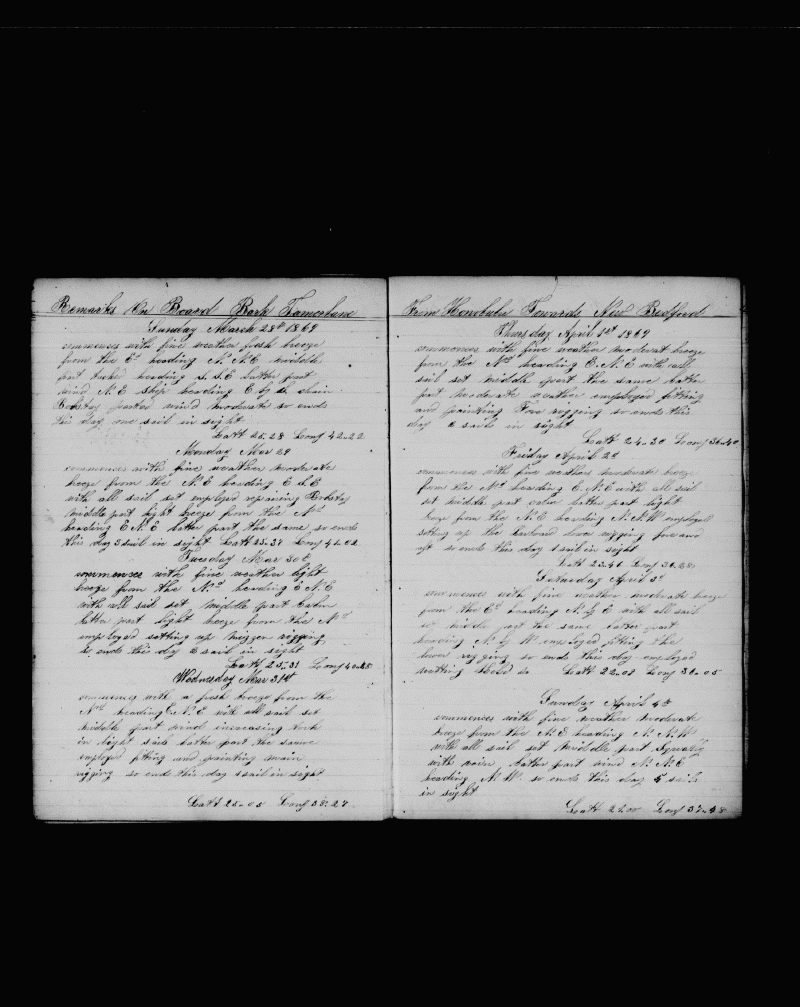 Remarks On Board Bark Tamerlane
Sunday March 28th 1869
commences with fine weather fresh breeze
from the Ed heading N. N. E middle
part tacked heading S. S. E latter part
wind N. E ship heading E by S. chain
Bobstay parted wind moderate so ends
this day one sail in sight
Latt 25-28 Long 42-22
Monday Mar 29
commences with fine weather moderate
breeze from the N. E heading E S E
with all sail set employed repairing Bobstay
middle part light breeze from the Nd
heading E N. E latter part the same so ends
this day 3 sail in sight Latt 25-37 Long 41-02
Tuesday Mar 30th
commences with fine weather light
breeze from the Nd heading E N. E
with all sail set middle part Calm
latter part light breeze from the Nd
employed setting up mizzen rigging
so ends this day sail in sight
Latt 25-31 Long 40-25
Wednesday Mar 31st
commences with a fresh breeze from the
Nd heading E. N. E with all sail set
middle part wind increasing took
in light sails latter part the same
employed fitting and painting main
rigging so ends this day 1 sail in sight
Latt 25-05 Long 38-27
From Honolulu Towards New Bedford
Thursday April 1st 1869
commences with fine weather moderat breeze
from the Nd heading E. N. E with all
sail set middle part the same latter
part moderate weather employed fitting
and painting Fore rigging so ends this
day sails in sight
Latt 24-30 Long 36-40
Friday April 2d
commences with fine weather moderate breeze
from the Nd heading E. N. E with all sail
set middle part calm latter part light
breeze from the N. E heading N. N. W employed
setting up the Larboard lower rigging fore and
aft so ends this day 1 sail in sight
Latt 23-41 Long 36-28
Saturday April 3d
commences with fine weather moderate breeze
from the Ed heading N. by E with all sail
set middle part the same latter part
heading N. by W. employed fitting the
lower rigging so ends this day employed
Latt 22-08 Long
Sunday April 4th
commences with fine weather moderate
breeze from the N. E heading N. N. W
with all sail set middle part Squally
with rain latter part wind N. N. E
heading N. W. so ends this day 5 sails
in sight
Latt Long 37-48